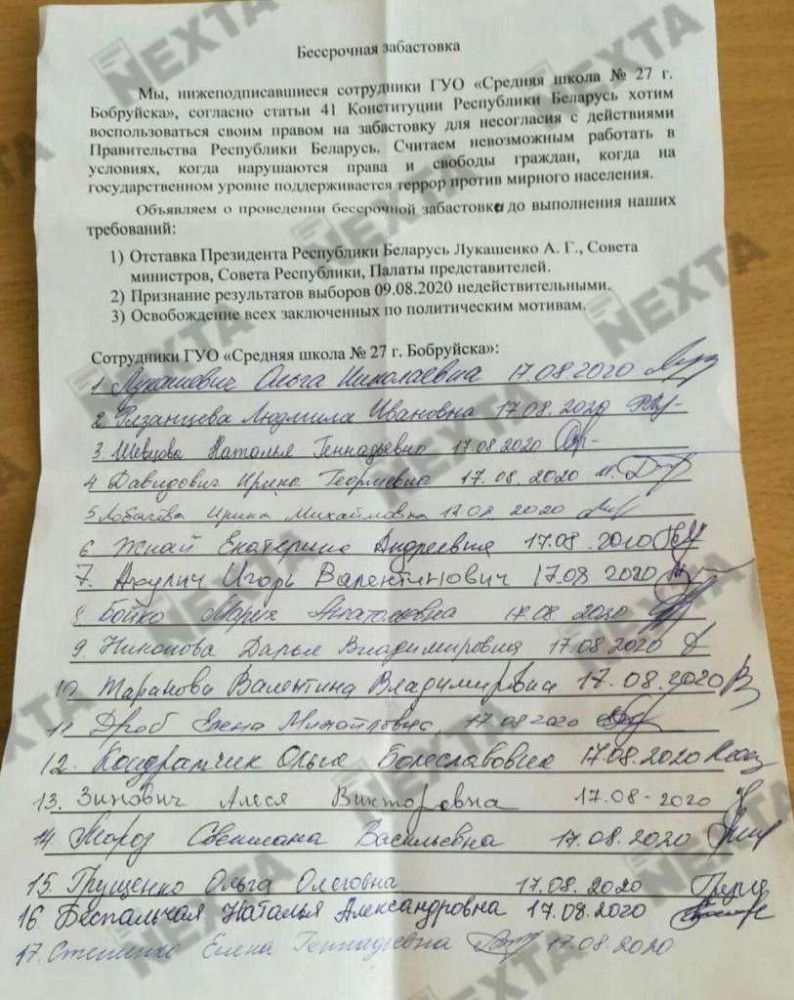 Бессрочная забастовка
Мы, нижеподписавшиеся сотрудники ГУО «Средняя школа № 27 г.
Бобруйска», согласно статьи 41 Конституции Республики Беларусь хотим
воспользоваться своим правом на забастовку для несогласия с действиями
Правительства Республики Беларусь. Считаем невозможным работать в
условиях, когда нарушаются права и свободы граждан, когда на
государственном уровне поддерживается террор против мирного населения.
Объявляем о проведении бессрочной забастовки до выполнения наших
требований:
1) Отставка Президента Республики Беларусь Лукашенко А. Г., Совета
министров, Совета Республики, Палаты представителей.
2) Признание результатов выборов 09.08.2020 недействительными.
3) Освобождение всех заключенных по политическим мотивам.
Сотрудники ГУО «Средняя школа № 27 г. Бобруйска»:
1 Ольга Николаевна 17.08.2020
2 Рязанцева Людмила Ивановна 17.08.2020
3. Шевцова Наталья Геннадьевна 17.08.2020
4 Давидович Ирина Георгиевна 17.08.2020
5 Ирина Михайловна 2020
6 Екатерина Андреевна 17.08.2020
7. Акулич Игорь Валентинович 17.08.2020
8. Бойко Мария Анатольевна 17.08.2020
9. Дарья Владимировна 17.08.2020
10. Таранова Валентина Владимировна 17.08.2020
11. Дроб Елена Михайловна, 17.08.2020
12. Кондратчик Ольга Болеславовна 17.08.2020
13. Зинович Алеся Викторовна 17.08-2020
14. Мороз Светлана Васильевна 17.08.2020
15. Грущенко Ольга Олеговна 17.08.2020
16 Беспальчая Наталья Александровна 17.08.2020
17. Елена Геннадьевна 17.08.2020
NEXTA